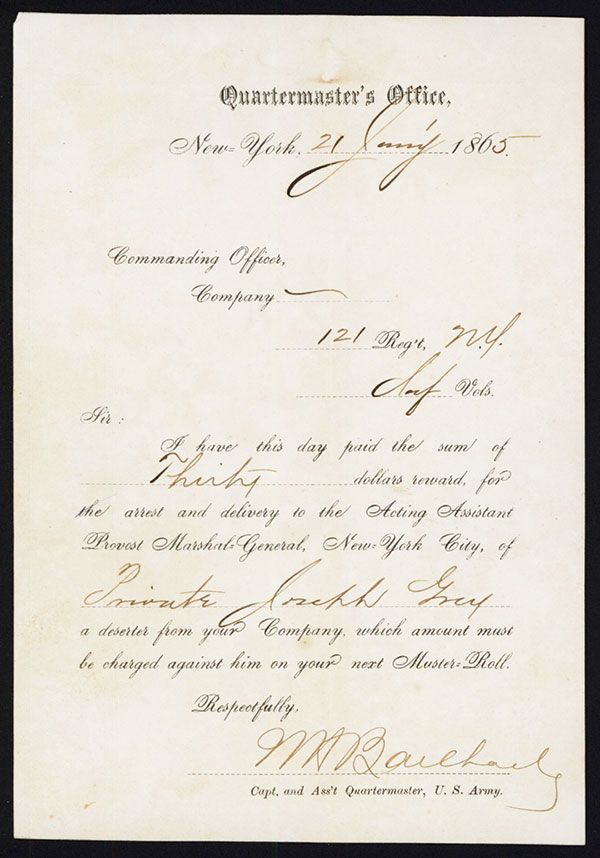 Quartermaster's Office,
New=York, 21 Jan'y 1865.
Commanding Officer,
Company —
121 Reg't, N.Y.
Inf Vols.
Sir:
I have this day paid the sum of
Thirty dollars reward, for
the arrest and delivery to the Acting Assistant
Provost Marshal=General, New=York City, of
Private Joseph Grey
a deserter from your Company, which amount must
be charged against him on your next Muster=Roll.
Respectfully,
Capt. and Ass't Quartermaster, U. S. Army.